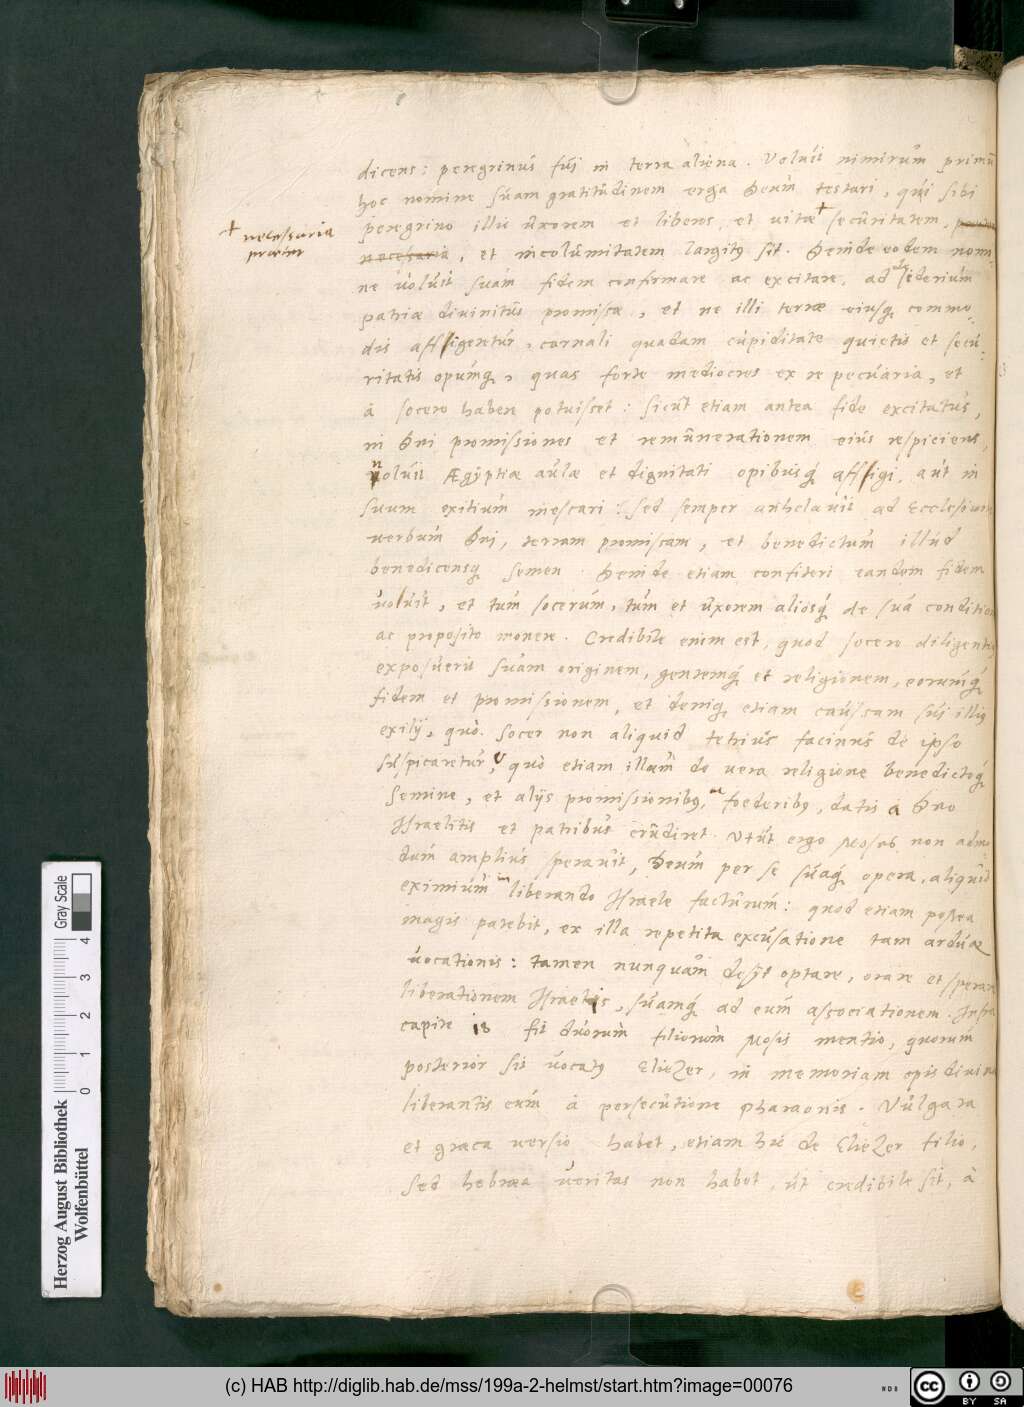 dicens: peregrinus fui in terra aliena. Voluit nimirum primū
hoc nomine suam gratitudinem erga Deum testari, qui sibi
peregrino illic uxorem et liberos, et vitae + securitatem,
+ necessaria
necesaria, et incolumitatem largitus sit. Deinde eodem nomi-
ne voluit suam fidem confirmare ac excitare, ad desiderium
patriae divinitus promissae, et ne illi terrae eiusq commo-
dis affligentur, carnali quadam cupiditate quietis et secu-
ritatis opumq, quas forte mediocres ex re pecuaria, et
à socero habere potuisset: sicut etiam antea fide excitatus,
in Dni promissiones et remunerationem eius respiciens,
noluit Ægyptiae aulae et dignitati opibusq affligi, aut in
suum exitium inescari: sed semper anhelavit ad Ecclesiam
verbum Dni, terram promissam, et benedictum illud
benedicensq semen. Deinde etiam confiteri eandem fidem
voluit, et tum socerum, tum et uxorem aliosq de sua condition
ac proposito monere. Credibile enim est, quod socero diligenter
exposuerit suam originem, gentemq et religionem, eorumq
fidem et promissionem, et deniq etiam causam sui illius
exilij, quò socer non aliquid tetrius facinus de ipso
suspicaretur, quò etiam illum de vera religione benedictoq
semine, et alijs promissionibus, ac foederibus, datis à Dno
Israelitis et patribus erudiret. Utut ergo Moses non admo
dum amplius speravit, Deum per se suaq opera, aliquid
eximium in liberando Israele facturum: quod etiam postea
magis patebit, ex illa repetita excusatione tam arduae
vocationis: tamen nunquam desijt optare, orare et sperare
liberationem Israelis, suamq ad eum associationem. Infra
capite 18 fit duorum filiorum Mosis mentio, quorum
posterior sit vocatus Eliezer, in memoriam opis divinae
liberantis eum à persecutione Pharaonis. Vulgata
et graeca versio habet, etiam hic de Eliezer filio,
sed hebraea veritas non habet, ut credibile sit, à
Herzog August Bibliothek
Wolfenbüttel
0 1 2 3 4
Gray Scale
(c) HAB http://diglib.hab.de/mss/199a-2-helmst/start.htm?image=00076
cc BY SA